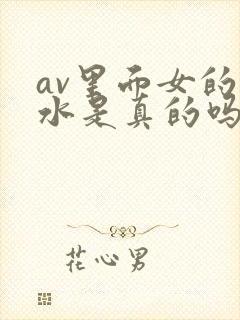 av里面女的
水是真的吗
花心男